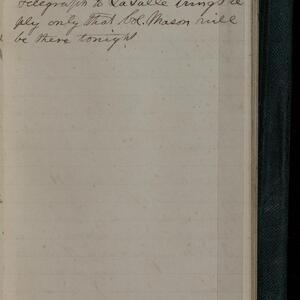 Telegraph to LaSalle brings re
ply only that Col. Mason will
be there tonight